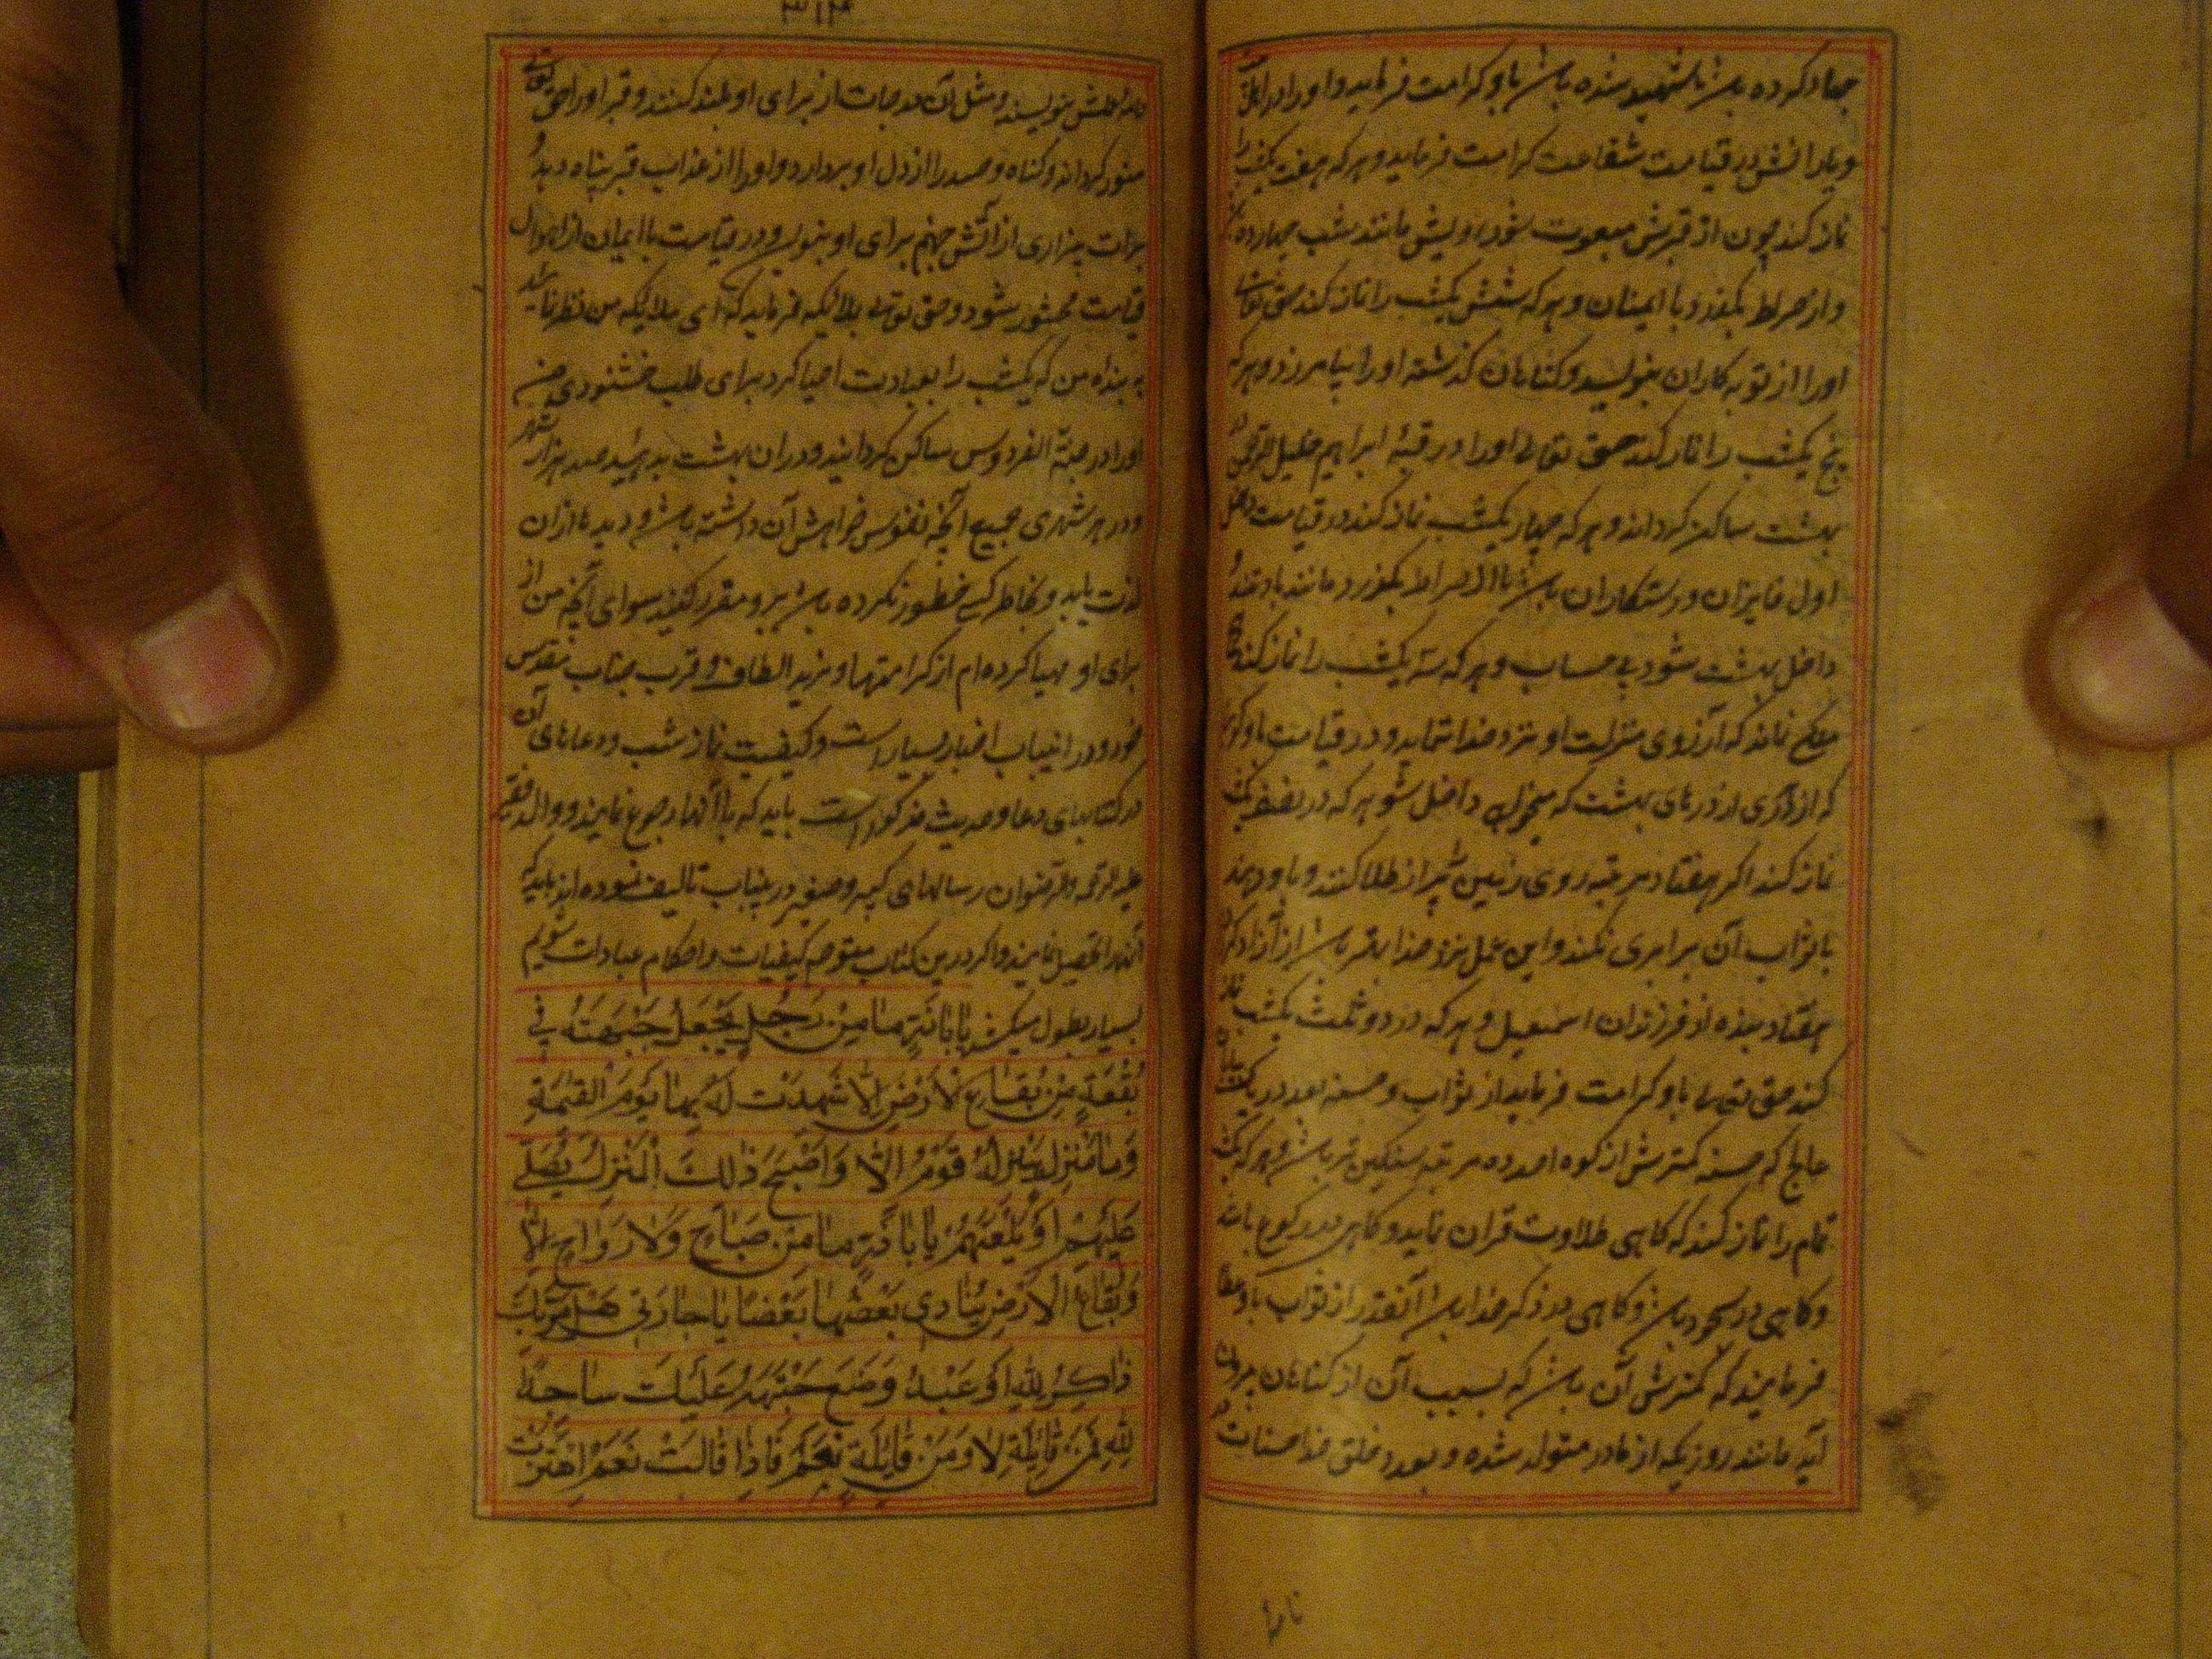 جهاد کرده باشد تا شهید شده باشد باو کرامت فرماید و اورا در اهل
و یارانش در قیامت شفاعت کرامت فرماید و هر که هفت یکشب را
نماز کند چون از قبرش مبعوث شود رویش مانند شب چهارده
و از صراط بگذرد با ایمنان و هر که شش یکشب را نماز کند حق تعالی
اورا از توبه کاران بنویسد و کناهان کذشته اورا بیامرزد و هر که
پنج یکشب را نماز کند حق تعالی اورا در قبّهٔ ابراهیم خلیل الرحمن در
بهشت ساکن کرداند و هر که چهار یکشب نماز کند در قیامت داخل
اول فایزان و رستکاران باشد تا از صراط بکذرد مانند باد تند و
داخل بهشت شود بی حساب و هر که سه یکشب را نماز کند هیچ
ملکی نماند که آرزوی منزلت او نزد خدا ننماید و در قیامت باو کویند
که از هر دری از درهای بهشت که میخواهی داخل شو هر که در نصف یکشب
نماز کند اکر هفتاد مرتبه روی زمین را پر از طلا کنند و باو دهند
با ثواب آن برابری نکند و این عمل نزد خدا بهتر باشد از آزاد کردن
هفتاد بنده از فرزندان اسمعیل و هر که در دو ثلث یکشب نماز
کند حق تعالی باو کرامت فرماید از ثواب و حسنه بعدد ریک بیابان
عالج که حسنه کمترش از کوه احد ده مرتبه سنکین تر باشد و هر که یکشب
تمام را نماز کند که کاهی تلاوت قران نماید و کاهی در رکوع باشد
و کاهی در سجود باشد و کاهی در ذکر خدا باشد آنقدر از ثواب باو عطا
فرمایند که کمترش آن باشد که بسبب آن از کناهان بیرون
آید مانند روزیکه از مادر متولد شده و بعدد خلق خدا حسنات در
نامه
۳۱۴
نامه عملش بنویسند و مثل آن درجات از برای او بلند کنند و قبر اورا حق تعالی
منور کرداند و کناه و حسد را از دل او بردارد و اورا از عذاب قبر پناه دهد و
برات بیزاری از آتش جهنم برای او بنویسد و در قیامت با ایمنان از اهوال
قیامت محشور شود و حق تعالی بملائکه فرماید که ای ملائکه من نظر نمائید
به بنده من که یکشب را بعبادت احیا کرد برای طلب خشنودی من
اورا در جنّة الفردوس ساکن کردانید و دران بهشت بدهید صد هزار شهر
و در هر شهری جمیع آنچه نفوس خواهش آن داشته باشد و دیده ها ازان
لذت یابد و بخاطر کسی خطور نکرده باشد برو مقرر کنید سوای آنچه من از
برای او مهیا کرده ام از کرامتها و مزید الطاف و قرب جناب مقدس
خود و در اینباب اخبار بسیار است و کیفیت نماز شب و دعاهای آن
در کتابهای دعا و حدیث مذکور است باید که باآنها رجوع نمایند و والد فقیر
علیه الرحمه والرضوان رسالهای کبیر و صغیر در اینباب تالیف نموده اند باید که
آنهارا تحصیل نمایند و اکر درین کتاب متوجه کیفیات و احکام عبادات شویم
بسیار بطول میکشد یٰا اَبٰاذَرٍّ مٰا مِنْ رَجُلٍ یَجْعَلُ جَبْهَتَهُ فِی
بُقْعَةٍ مِنْ بُقٰاعِ الْاَرْضِ اِلّٰا شَهِدَتْ لَهُ بِهٰا یَوْمَ الْقِیٰمَةِ
وَ مٰا مَنْزِلٍ یَنْزِلُهُ قَوْمٌ اِلّٰا وَ اَصْبَحَ ذٰلِكَ الْمَنْزِلُ یُصَلِّی
عَلَیْهِمْ اَوْ یَلْعَنُهُمْ یٰا اَبٰاذَرٍّ مٰا مِنْ صَبٰاحٍ وَلٰا رَوٰاحٍ اِلّٰا
وَ بُقٰاعُ الْاَرْضِ یُنٰادِی بَعْضُهٰا بَعْضًا یٰا جٰارَتِی هَلْ مَرَّ بِكِ
ذٰاكِرٌ لِلّٰهِ اَوْ عَبْدٌ وَضَعَ جَبْهَتَهُ عَلَیْكِ سٰاجِدًا
لِلّٰهِ فَمِنْ قٰائِلَةٍ لٰا وَ مِنْ قٰائِلَةٍ نَعَمْ فَاِذٰا قٰالَتْ نَعَمْ اِهْتَزَّتْ